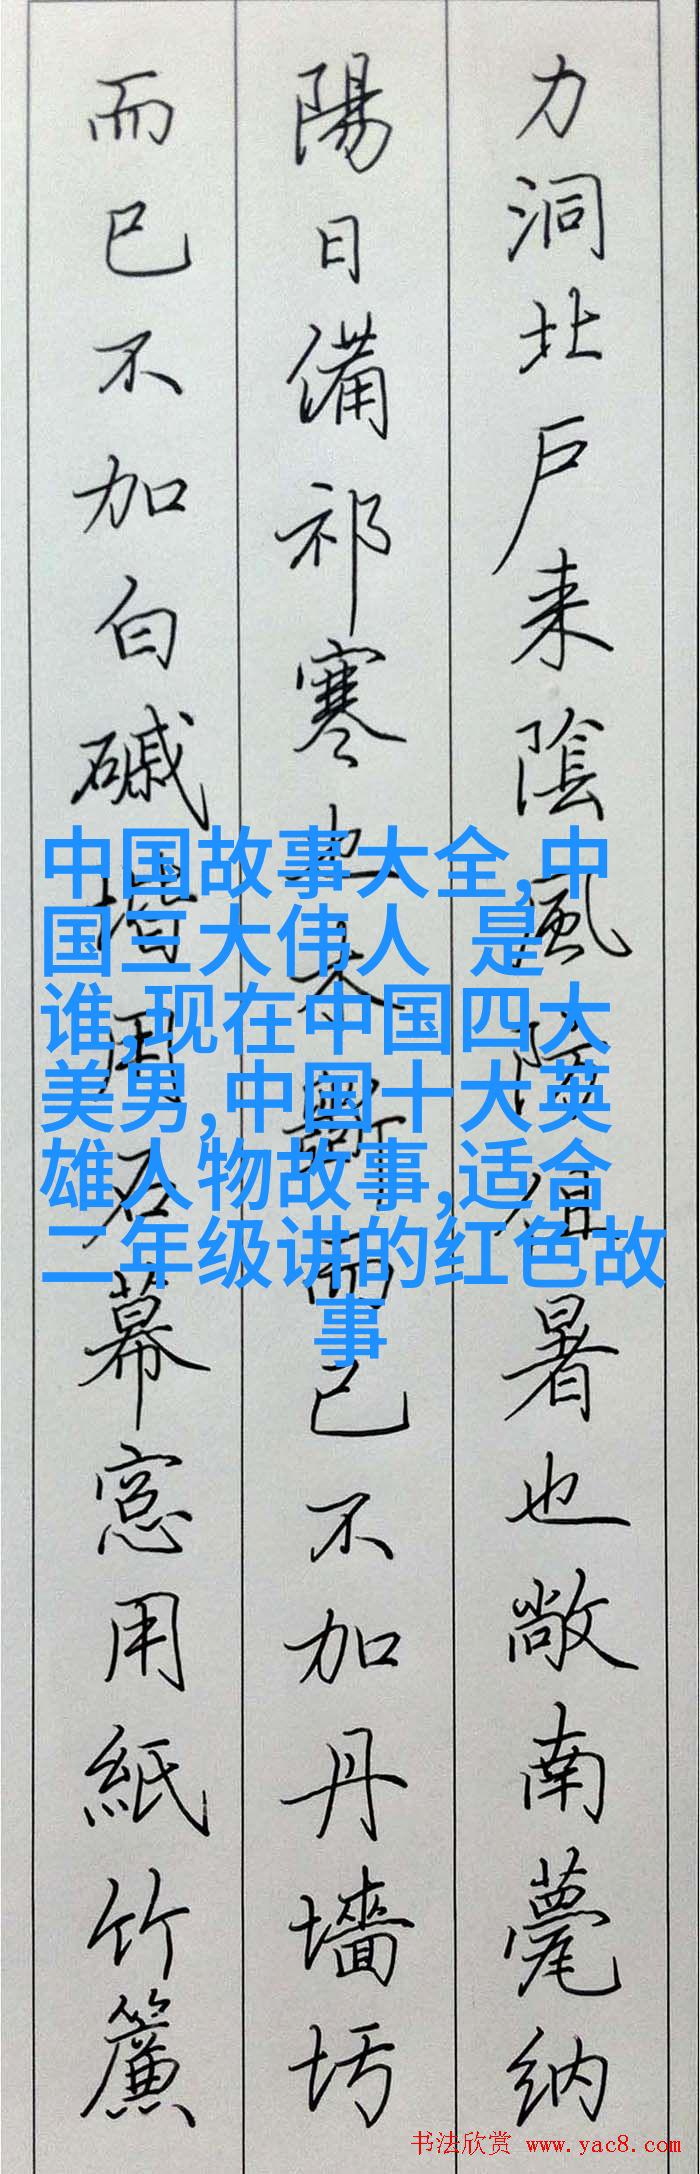 力洞北戶来陰風防徂暑也敞南甍納
陽日備祁寒也木斲而已不加丹墻圬
而已不加白磩堦用石幕窓用紙竹簾
中国故事大全,中
国三大伟人 是
谁,现在中国四大
美男,中国十大英
雄人物故事,适合
二年级讲的红色故
事
书法欣赏 www.yac8.com